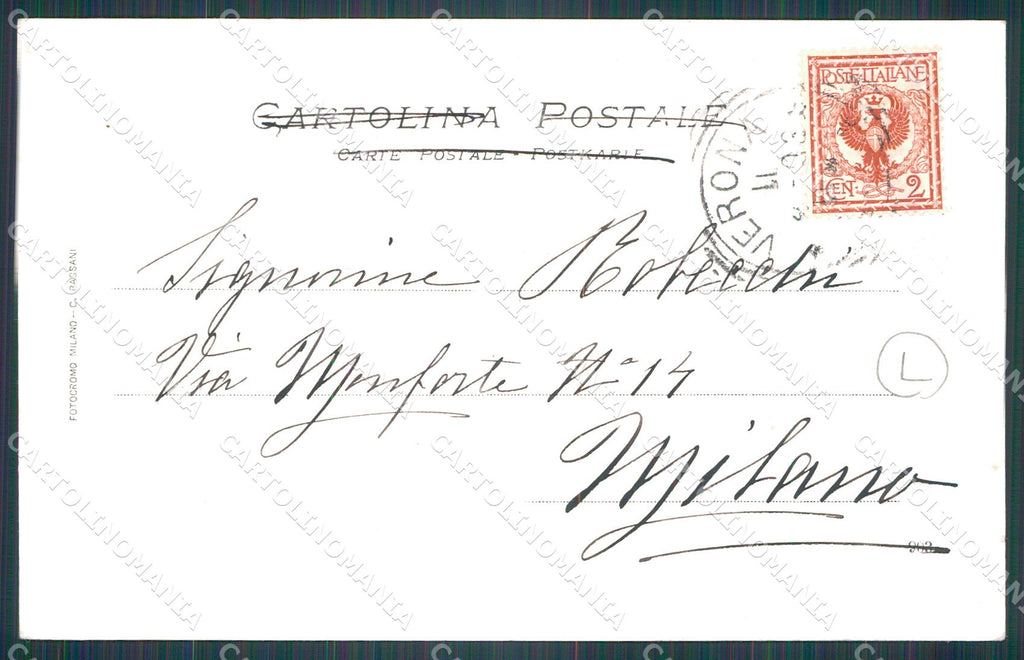 CARTOLINA POSTALE
CARTE POSTALE - POSTKARTE
POSTE ITALIANE
CEN. 2
VERONA
11
Signorine Robecchi
Via Monforte No 14
Milano
L
FOTOCROMO MILANO - C. RAGSANI
903
CARTOLINOMANIA